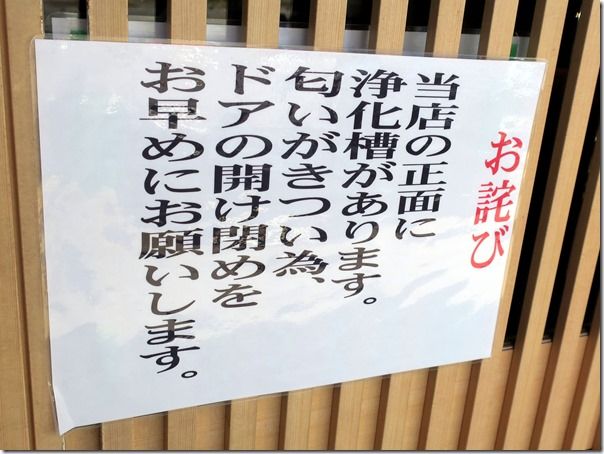 お詫び
当店の正面に
浄化槽があります。
匂いがきつい為、
ドアの開け閉めを
お早めにお願いします。